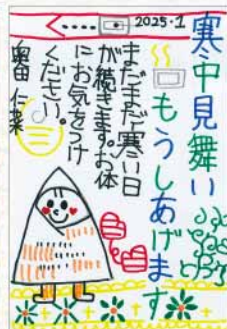 2025.1
寒中見舞い
もうしあげます
まだまだ寒い日
が続きます。お体
にお気をつけ
ください。